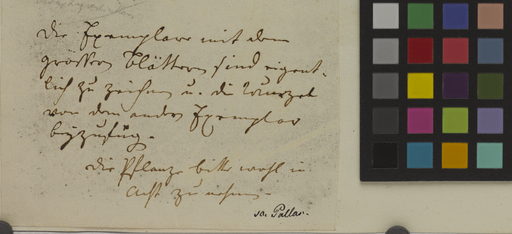 die Exemplare mit den
grössern Blättern sind eigent-
lich zu zeichnen u. die Wurzel
von dem andern Exemplar
beyzufügen.
die Pflanze bitte wohl in
Acht zu nehmen.
sc. Pallas.